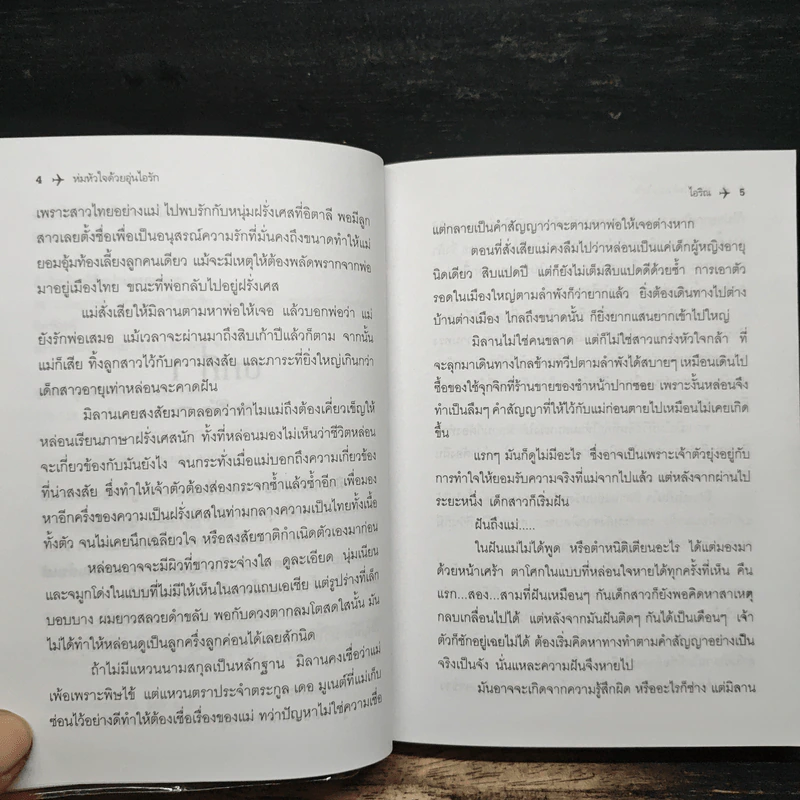 4 ✈ ห่มหัวใจด้วยอุ่นไอรัก
เพราะสาวไทยอย่างแม่ ไปพบรักกับหนุ่มฝรั่งเศสที่อิตาลี พอมีลูก
สาวเลยตั้งชื่อเพื่อเป็นอนุสรณ์ความรักที่มั่นคงถึงขนาดทำให้แม่
ยอมอุ้มท้องเลี้ยงลูกคนเดียว แม้จะมีเหตุให้ต้องพลัดพรากจากพ่อ
มาอยู่เมืองไทย ขณะที่พ่อกลับไปอยู่ฝรั่งเศส
แม่สั่งเสียให้มิลานตามหาพ่อให้เจอ แล้วบอกพ่อว่า แม่
ยังรักพ่อเสมอ แม้เวลาจะผ่านมาถึงสิบเก้าปีแล้วก็ตาม จากนั้น
แม่ก็เสีย ทิ้งลูกสาวไว้กับความสงสัย และภาระที่ยิ่งใหญ่เกินกว่า
เด็กสาวอายุเท่าหล่อนจะคาดฝัน
มิลานเคยสงสัยมาตลอดว่าทำไมแม่ถึงต้องเคี่ยวเข็ญให้
หล่อนเรียนภาษาฝรั่งเศสนัก ทั้งที่หล่อนมองไม่เห็นว่าชีวิตหล่อน
จะเกี่ยวข้องกับมันยังไง จนกระทั่งเมื่อแม่บอกถึงความเกี่ยวข้อง
ที่น่าสงสัย ซึ่งทำให้เจ้าตัวต้องส่องกระจกซ้ำแล้วซ้ำอีก เพื่อมอง
หาอีกครึ่งของความเป็นฝรั่งเศสในท่ามกลางความเป็นไทยทั้งเนื้อ
ทั้งตัว จนไม่เคยนึกเฉลียวใจ หรือสงสัยชาติกำเนิดตัวเองมาก่อน
หล่อนอาจจะมีผิวที่ขาวกระจ่างใส ดูละเอียด นุ่มเนียน
และจมูกโด่งในแบบที่ไม่มีให้เห็นในสาวแถบเอเชีย แต่รูปร่างที่เล็ก
บอบบาง ผมยาวสลวยดำขลับ พอกับดวงตากลมโตสดใสนั้น มัน
ไม่ได้ทำให้หล่อนดูเป็นลูกครึ่งลูกค่อนได้เลยสักนิด
ถ้าไม่มีแหวนนามสกุลเป็นหลักฐาน มิลานคงเชื่อว่าแม่
เพ้อเพราะพิษไข้ แต่แหวนตราประจำตระกูล เดอ มูเนต์ที่แม่เก็บ
ซ่อนไว้อย่างดีทำให้ต้องเชื่อเรื่องของแม่ ทว่าปัญหาไม่ใช่ความเชื่อ
ไอริณ ✈ 5
แต่กลายเป็นคำสัญญาว่าจะตามหาพ่อให้เจอต่างหาก
ตอนที่สั่งเสียแม่คงลืมไปว่าหล่อนเป็นแค่เด็กผู้หญิงอายุ
นิดเดียว สิบแปดปี แต่ก็ยังไม่เต็มสิบแปดดีด้วยซ้ำ การเอาตัว
รอดในเมืองใหญ่ตามลำพังก็ว่ายากแล้ว ยิ่งต้องเดินทางไปต่าง
บ้านต่างเมือง ไกลถึงขนาดนั้น ก็ยิ่งยากแสนยากเข้าไปใหญ่
มิลานไม่ใช่คนขลาด แต่ก็ไม่ใช่สาวแกร่งหัวใจกล้า ที่
จะลุกมาเดินทางไกลข้ามทวีปตามลำพังได้สบายๆ เหมือนเดินไป
ซื้อของใช้จุกจิกที่ร้านขายของชำหน้าปากซอย เพราะงั้นหล่อนจึง
ทำเป็นลืมๆ คำสัญญาที่ให้ไว้กับแม่ก่อนตายไปเหมือนไม่เคยเกิด
ขึ้น
แรกๆ มันก็ดูไม่มีอะไร ซึ่งอาจเป็นเพราะเจ้าตัวยุ่งอยู่กับ
การทำใจให้ยอมรับความจริงที่แม่จากไปแล้ว แต่หลังจากผ่านไป
ระยะหนึ่ง เด็กสาวก็เริ่มฝัน
ฝันถึงแม่.....
ในฝันแม่ไม่ได้พูด หรือตำหนิติเตียนอะไร ได้แต่มองมา
ด้วยหน้าเศร้า ตาโศกในแบบที่หล่อนใจหายได้ทุกครั้งที่เห็น คืน
แรก...สอง...สามที่ฝันเหมือนๆ กันเด็กสาวก็ยังพอคิดหาสาเหตุ
กลบเกลื่อนไปได้ แต่หลังจากมันฝันติดๆ กันได้เป็นเดือนๆ เจ้า
ตัวก็ชักอยู่เฉยไม่ได้ ต้องเริ่มคิดหาทางทำตามคำสัญญาอย่างเป็น
จริงเป็นจัง นั่นแหละความฝันจึงหายไป
มันอาจจะเกิดจากความรู้สึกผิด หรืออะไรก็ช่าง แต่มิลาน